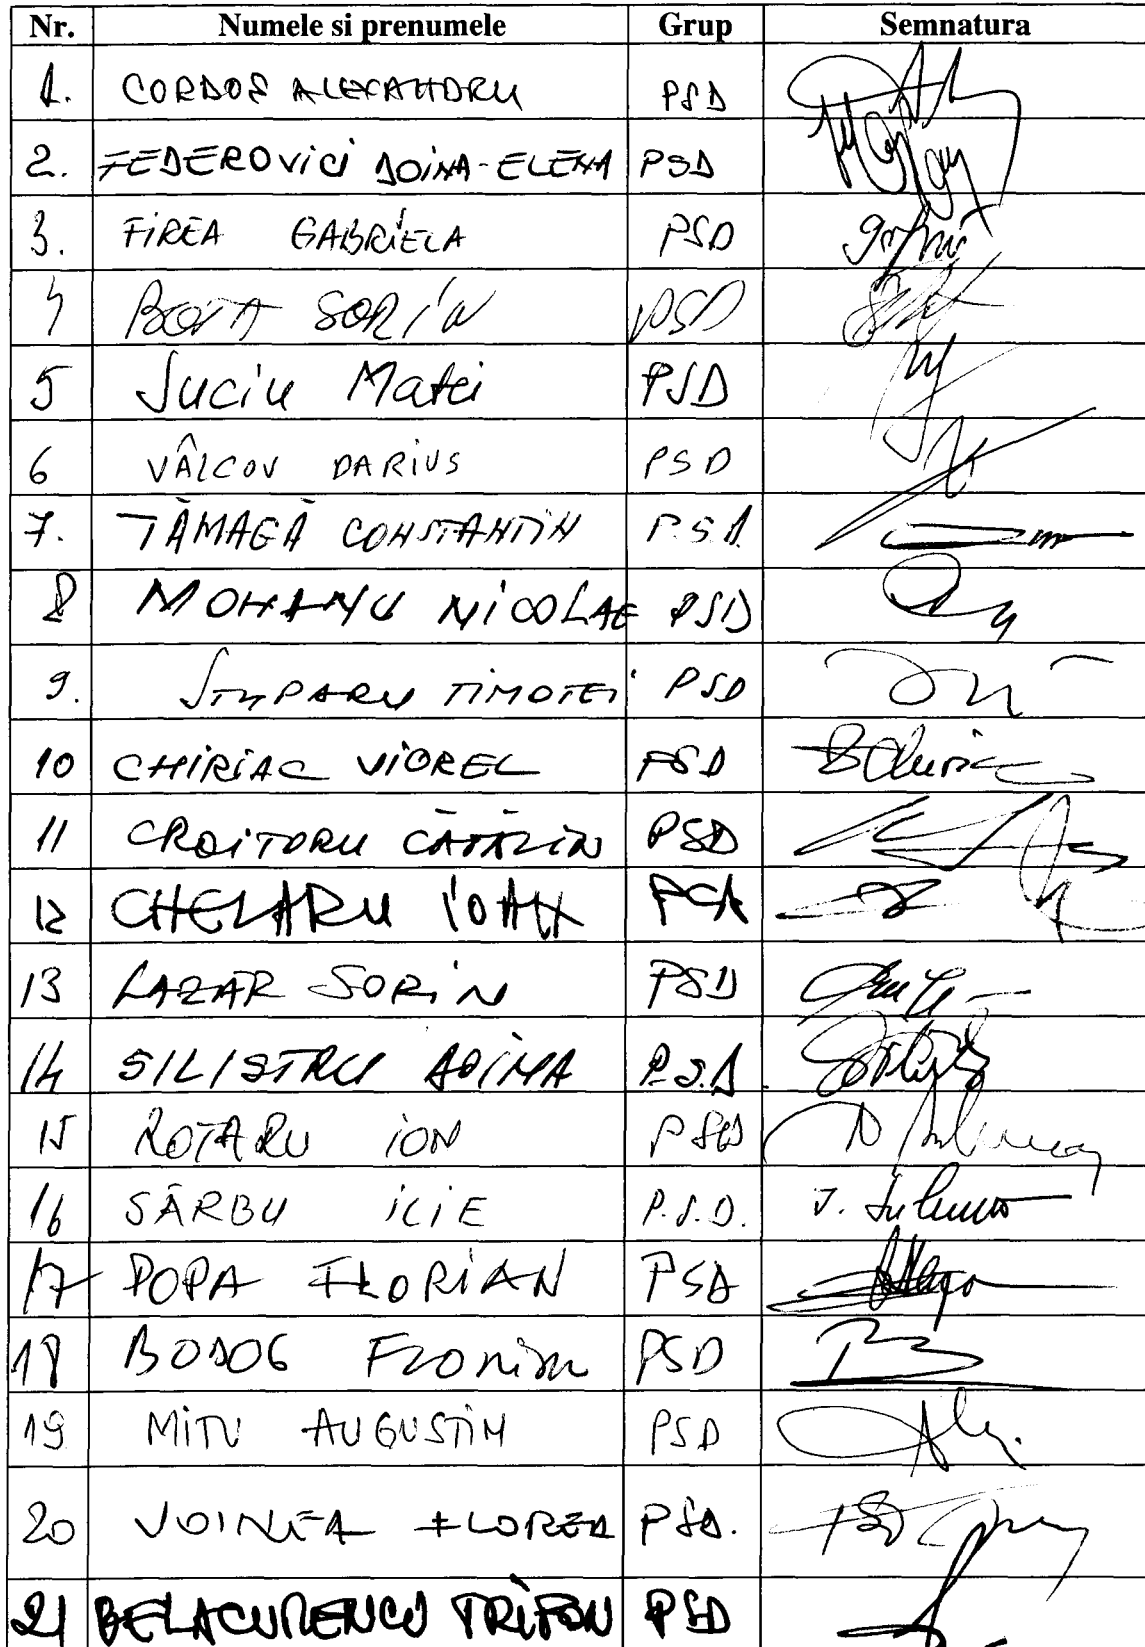 Nr. Numele si prenumele Grup Semnatura
1. CORDOȘ ALEXANDRU PSD
2. FEDEROVICI DOINA-ELENA PSD
3. FIREA GABRIELA PSD
4 BOTA SORIN PSD
5 Suciu Matei PSD
6 VÂLCOV DARIUS PSD
7. TĂMAGĂ CONSTANTIN P.S.D.
8 MOHANU NICOLAE PSD
9. STUPARU TIMOTEI PSD
10 CHIRIAC VIOREL PSD
11 CROITORU CĂTĂLIN PSD
12 CHELARU IOAN
13 LAZAR SORIN PSD
14 SILISTRU DOINA P.S.D.
15 ROTARU ION PSD
16 SÂRBU ILIE P.S.D.
17 POPA FLORIAN PSD
18 BODOG Florian PSD
19 MITU AUGUSTIN PSD
20 VOINEA FLOREA PSD.
21 BELACURENCU TRIFON PSD